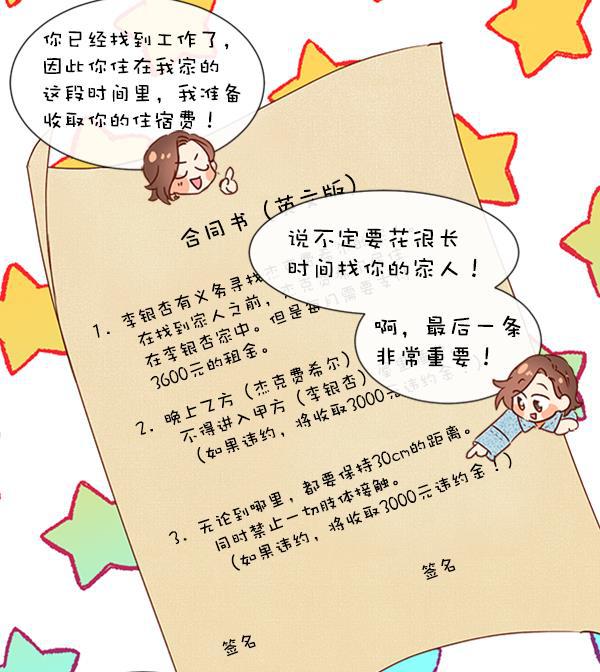 你已经找到工作了，
因此你住在我家的
这段时间里，我准备
收取你的住宿费！
合同书（英文版）
说不定要花很长
时间找你的家人！
啊，最后一条
非常重要！
1. 李银杏有义务寻找杰克费
在找到家人之前，
在李银杏家中。但是每月需要支
3600元的租金。
2. 晚上乙方（杰克费希尔）
不得进入甲方（李银杏）
（如果违约，将收取3000元违约金！）
3. 无论到哪里，都要保持30cm的距离。
同时禁止一切肢体接触。
（如果违约，将收取3000元违约金！）
签名
签名